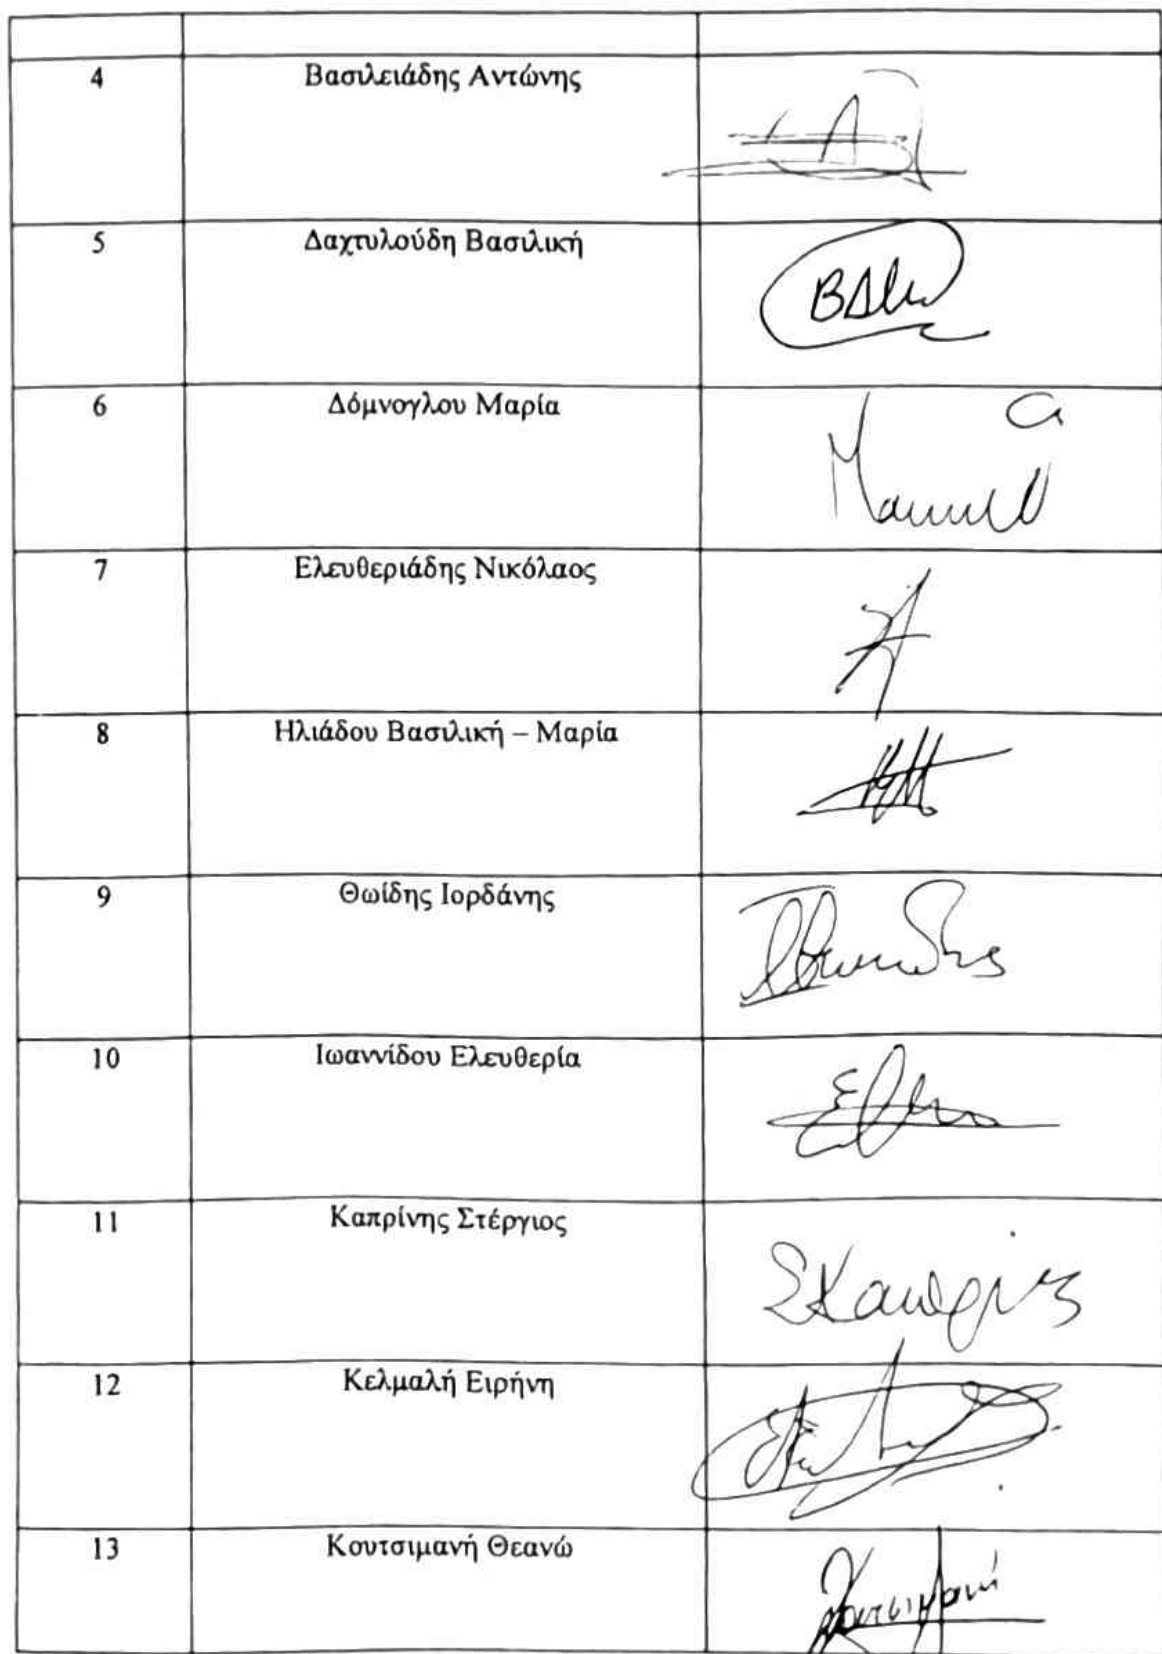 4 Βασιλειάδης Αντώνης
5 Δαχτυλούδη Βασιλική
6 Δόμνογλου Μαρία
7 Ελευθεριάδης Νικόλαος
8 Ηλιάδου Βασιλική – Μαρία
9 Θωίδης Ιορδάνης
10 Ιωαννίδου Ελευθερία
11 Καπρίνης Στέργιος
12 Κελμαλή Ειρήνη
13 Κουτσιμανή Θεανώ